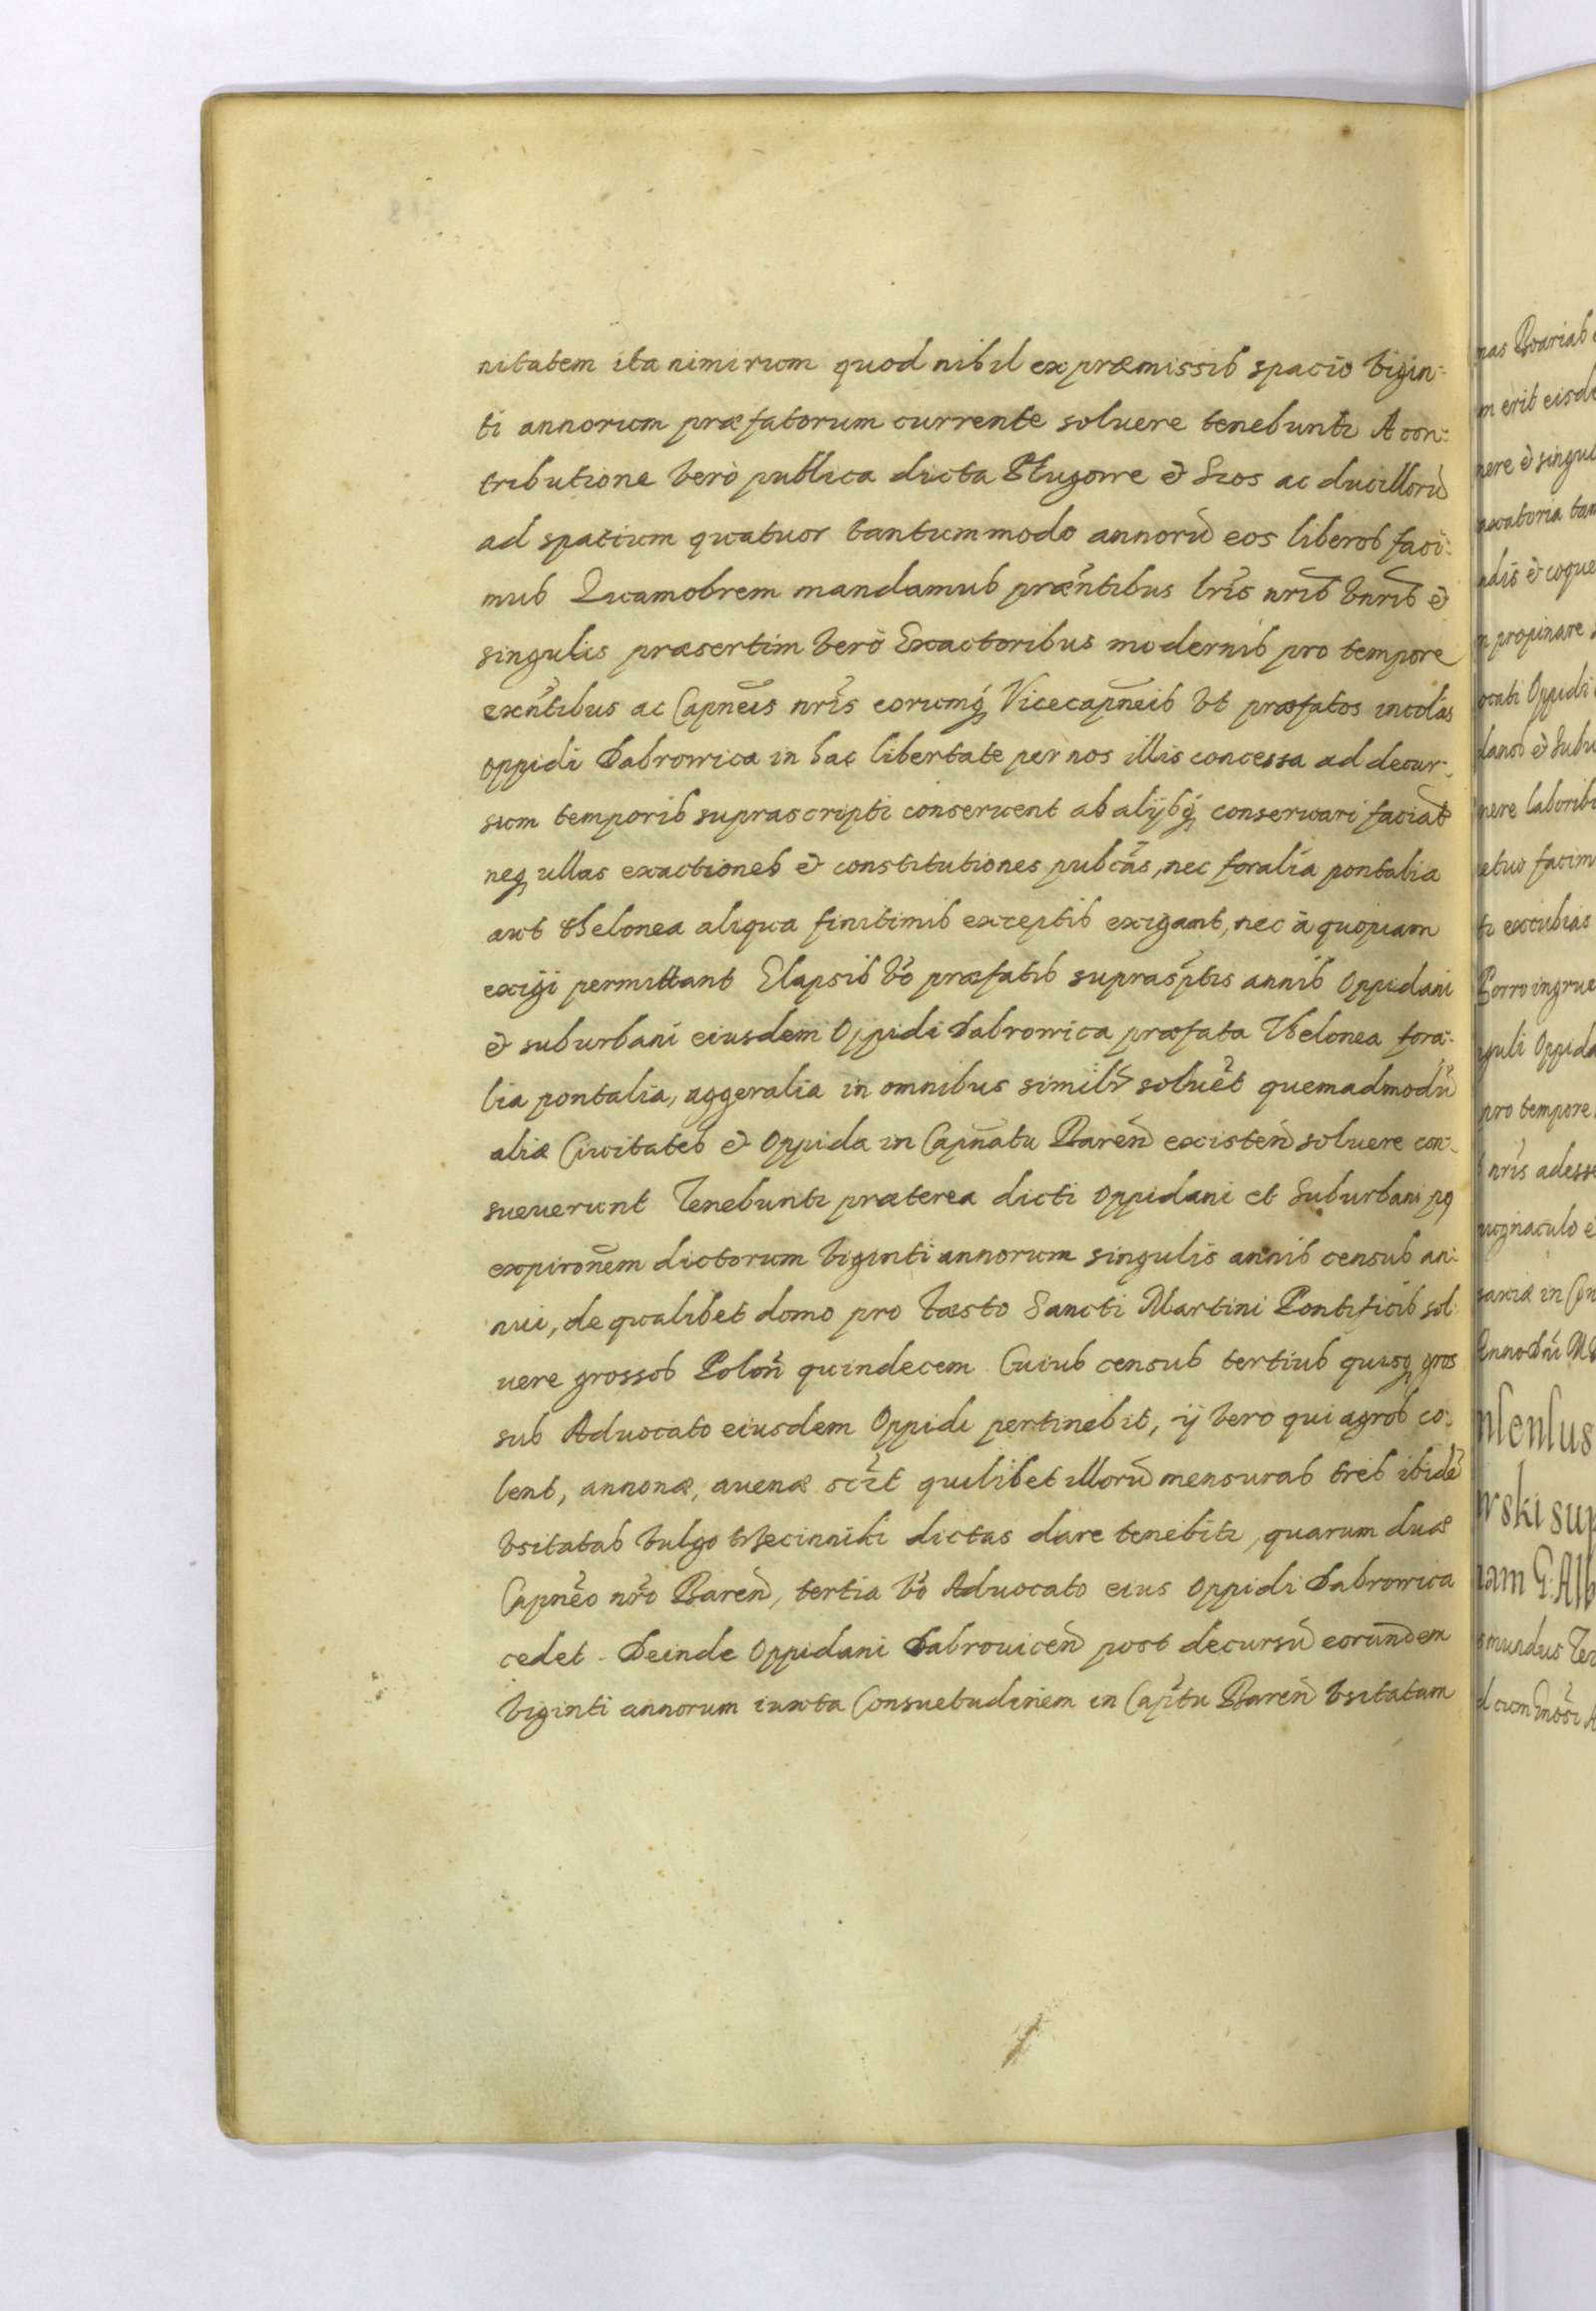 nitatem ita nimirum quod nihil ex præmissis spacio vigin-
ti annorum præfatorum currente soluere tenebuntr A con-
tributione verò publica dicta Pługowe & Szos ac ducillorū
ad spatium quatuor tantummodo annorū eos liberos faci-
mus Quamobrem mandamus præntibus lris nris vnris &
singulis præsertim verò Exactoribus modernis pro tempore
exntibus ac Capneis nris eorumq Vicecapneis vt præfatos incolas
oppidi Dabrowica in hac libertate per nos illis concessa ad decur-
sum temporis suprascripti conseruent ab alijsq conseruari faciāt
neq ullas exactiones & constitutiones pubcas, nec foralia pontalia
aut thelonea aliqua finitimis exceptis exigant, nec à quopiam
exigi permittant Elapsis vo præfatis suprasptis annis Oppidani
& suburbani eiusdem Oppidi Dabrowica præfata Thelonea fora-
lia pontalia, aggeralia in omnibus similr soluēt quemadmodū
aliæ Ciuitates & Oppida in Capnatu Baren existen soluere con-
sueuerunt Tenebuntr præterea dicti Oppidani et Suburbani pq
expironem dictorum viginti annorum singulis annis census an-
nui, de qualibet domo pro festo Sancti Martini Pontificis sol-
uere grossos Polon quindecem Cuius census tertius quisq gros
sus Aduocato eiusdem Oppidi pertinebit, ij vero qui agros co-
lent, annonæ, auenæ scit quilibet illorū mensuras tres ibidē
vsitatas vulgo trzecinniki dictas dare tenebitr, quarum duæ
Capneo nro Baren, tertia vo Aduocato eius Oppidi Dabrowica
cedet. Deinde Oppidani Dabrouicen post decursū eorundem
viginti annorum iuxta Consuetudinem in Capitu Baren vsitatam